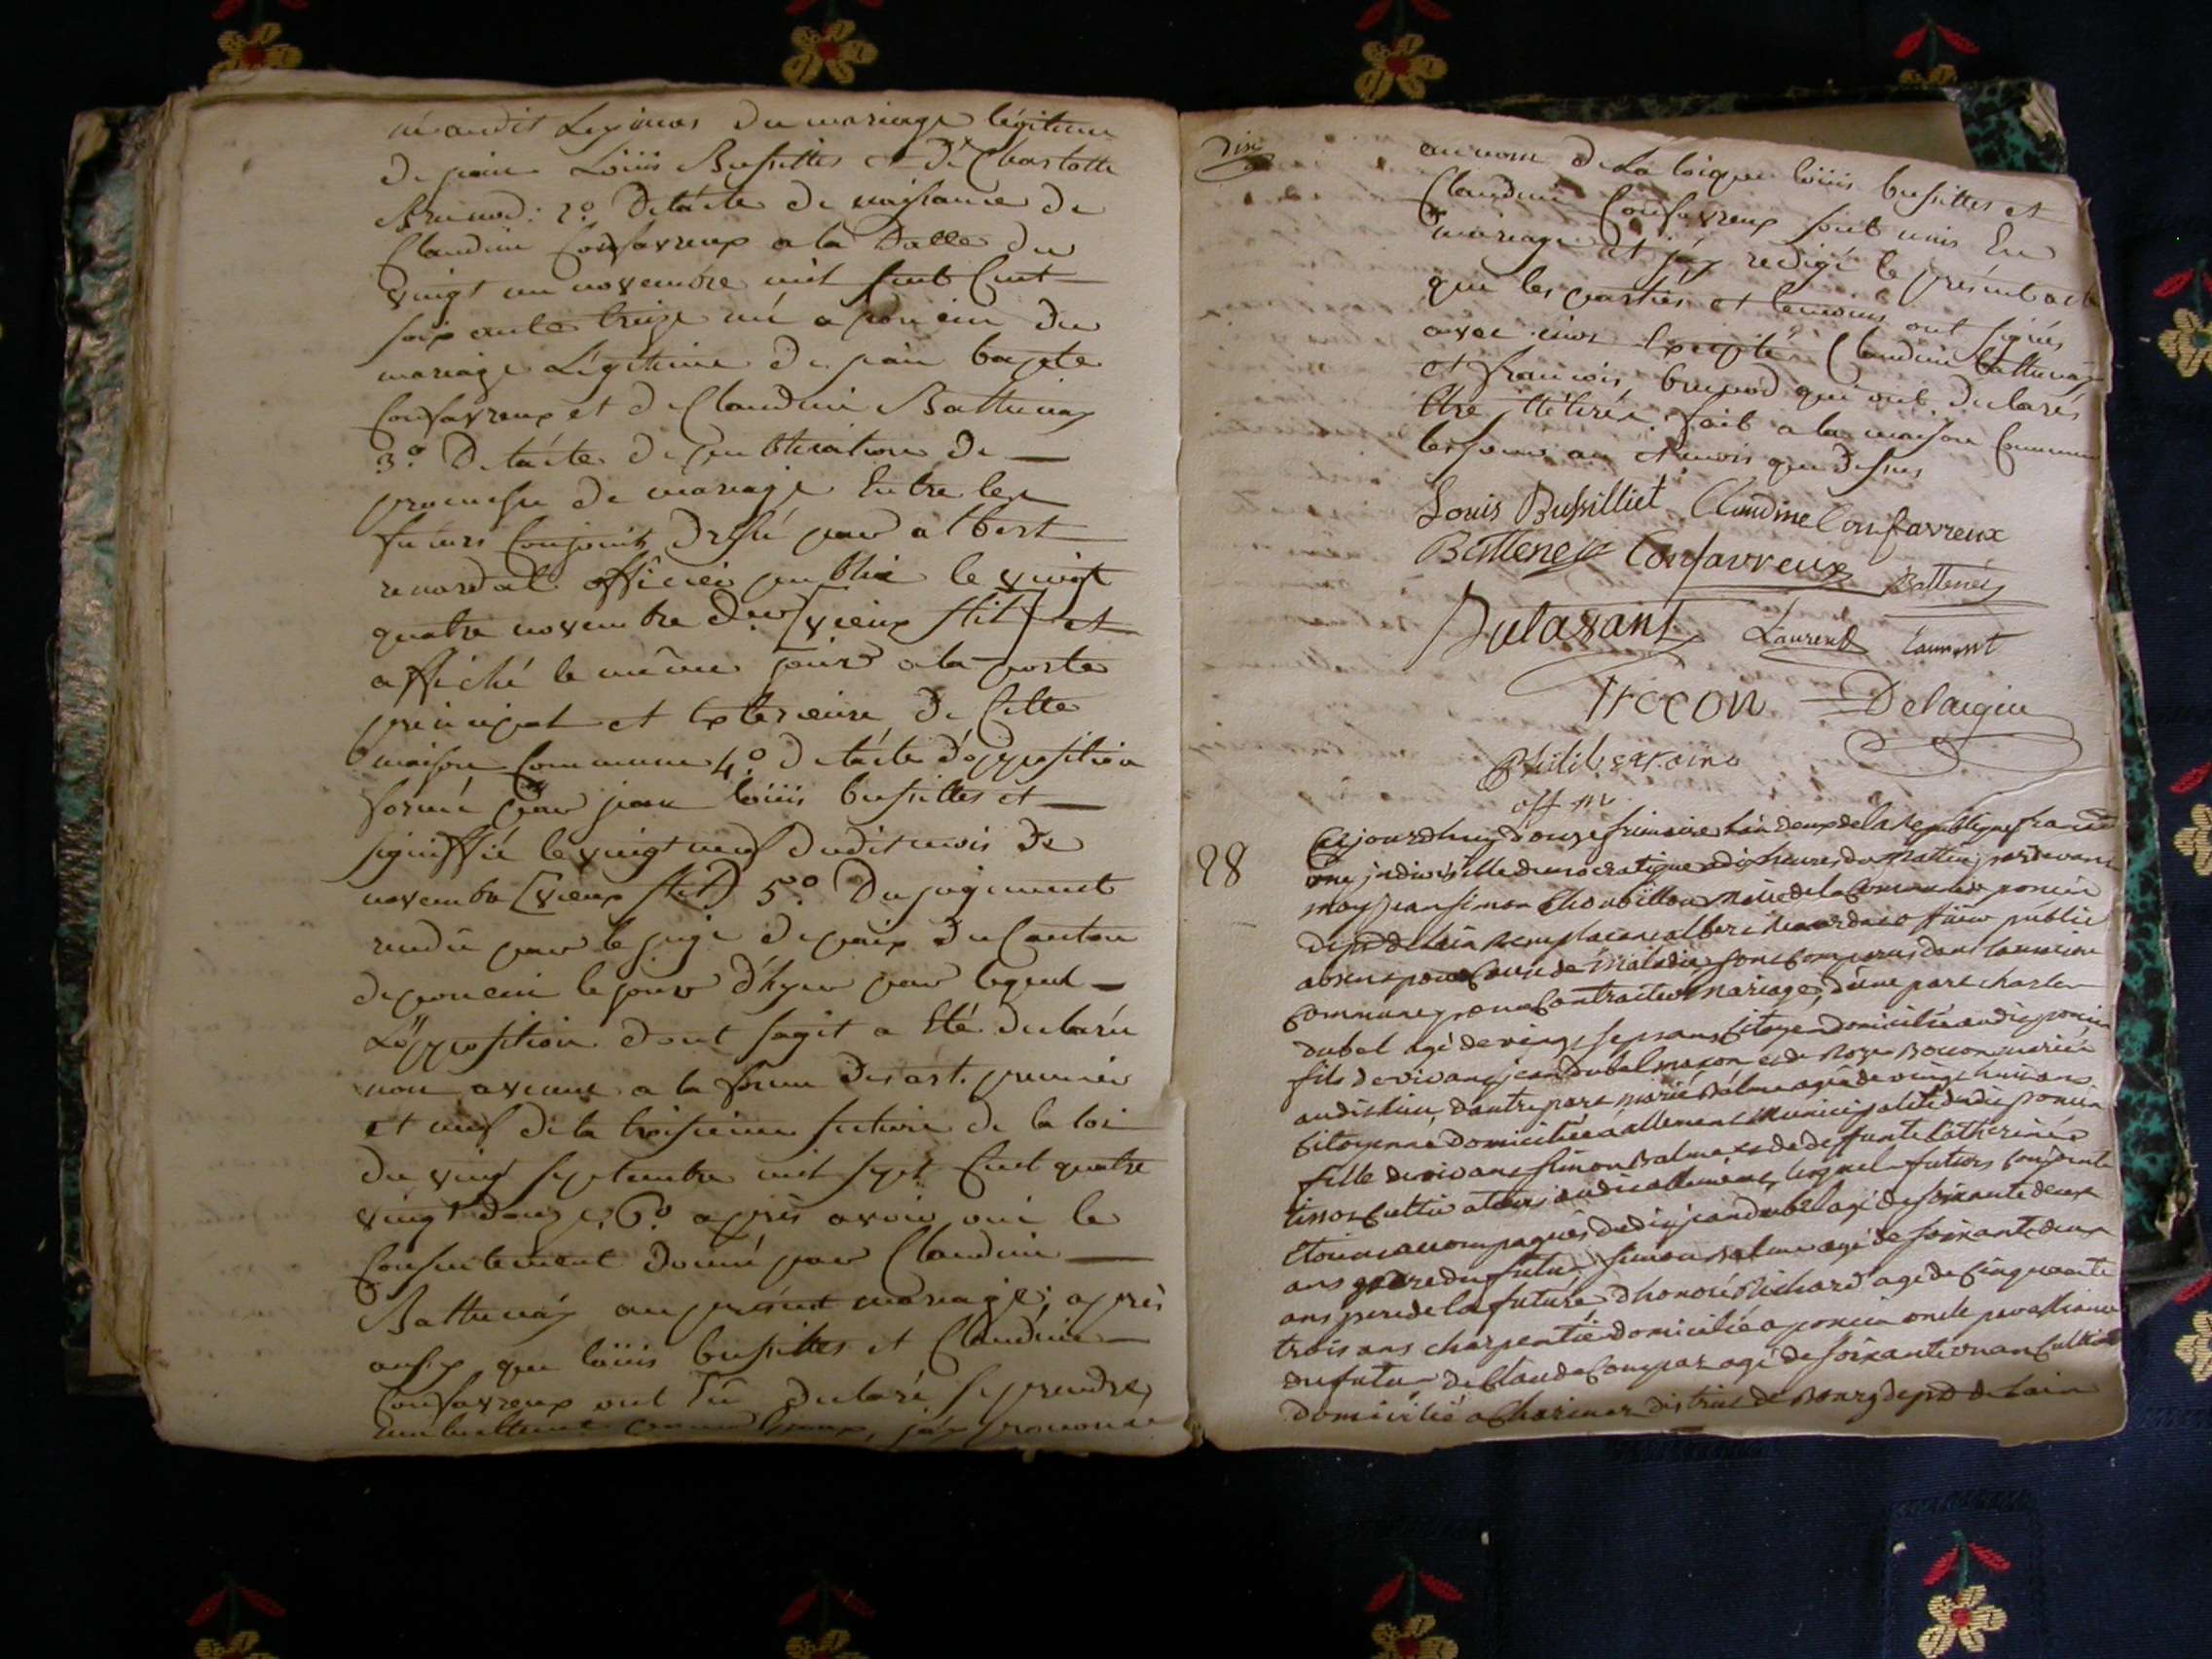 né audit Leymas du mariage légitime
de jean Loüis Bussilles et de Charlotte
Brunod: 2.o De lacte de naissance de
Claudine Confavreux a la datte du
vingt un novembre mil sept Cent
soixante treize né a poncin du
mariage Légitime de jean baptte
Confavreux et de Claudine Battenay
3.o De lacte de publication de
promesse de mariage Entre les
futurs Conjoints dressé par albert
renordat officier public le vingt
quatre novembre der (vieux stil) et
affiché le même jour a la porte
principal et Exterieure de Cette
maison Commune 4.o de lacte d'opposition
formée par jean loüis bussilles et
signiffié le vingt neuf dudit mois de
novembre (vieux stil) 5.o Du jugement
rendü par le juge de paix du Canton
de poncin le jour d'hyer par lequel
L'opposition dont sagit a Eté declarée
non avenue a la forme des art. premier
et neuf de la troisieme section de la loi
du vingt septembre mil sept Cent quatre
vingt douze; 6.o après avoir oui le
Consentement donné par Claudine
Battenay au présent mariage; après
aussy que loüis bussilles et Claudine
Confavreux ont Eü declaré se prendre
jay prononcé
dix
au nom de La loi que loüis bussilles et
Claudine Confavreux sont unis En
mariage et jay redigé le présent acte
que les parties et temoins ont signés
avec moi Excepté Claudine battenay
et francois brunod qui ont declarés
Etre illétirés. fait a la maison Commune
les jour an et mois que dessus
Louis Bussilliet Claudine Confavreux
Battenay Confavreux Battenay
Dulavant Laurend Laurent
Trocon Delaigue
Philibert
off m.
28
Cejourdhuy douze frimaire lan deux de la Republique francoise
une jndivisible democratique a dix heures du mattin pardevant
moy jean simon Chonbillon Maire de la Commune poncin
dept de lain remplacant albert renordat officier public
absent pour Cause de maladie, sont Comparus dans la maison
Commune pour Contracter mariage, d'une part charles
dubel agé de vingt sept ans Citoyen domicilié audit poncin
fils de vivant jean dubel macon et de Roze Bocon mariés
audit lieu, dautre part marie Balme agée de vingt huit ans
Citoyenne domiciliée a allement Municipalité dudit poncin
fille de vivant simon Balme et de deffunte Catherine
tissot Cultivateurs audit allement, lesquels futurs Conjoints
Etoient accompagnés dudit jean dubel agé de soixante deux
ans pere du futur, simon Balme agé de soixante deux
ans pere de la future, d honoré Richard agé de Cinquante
trois ans charpentier domicilié a poncin oncle par alliance
du futur, de Claude Compar agé de soixante un an Cultivateur
domicilié a district de Bourg dept de lain